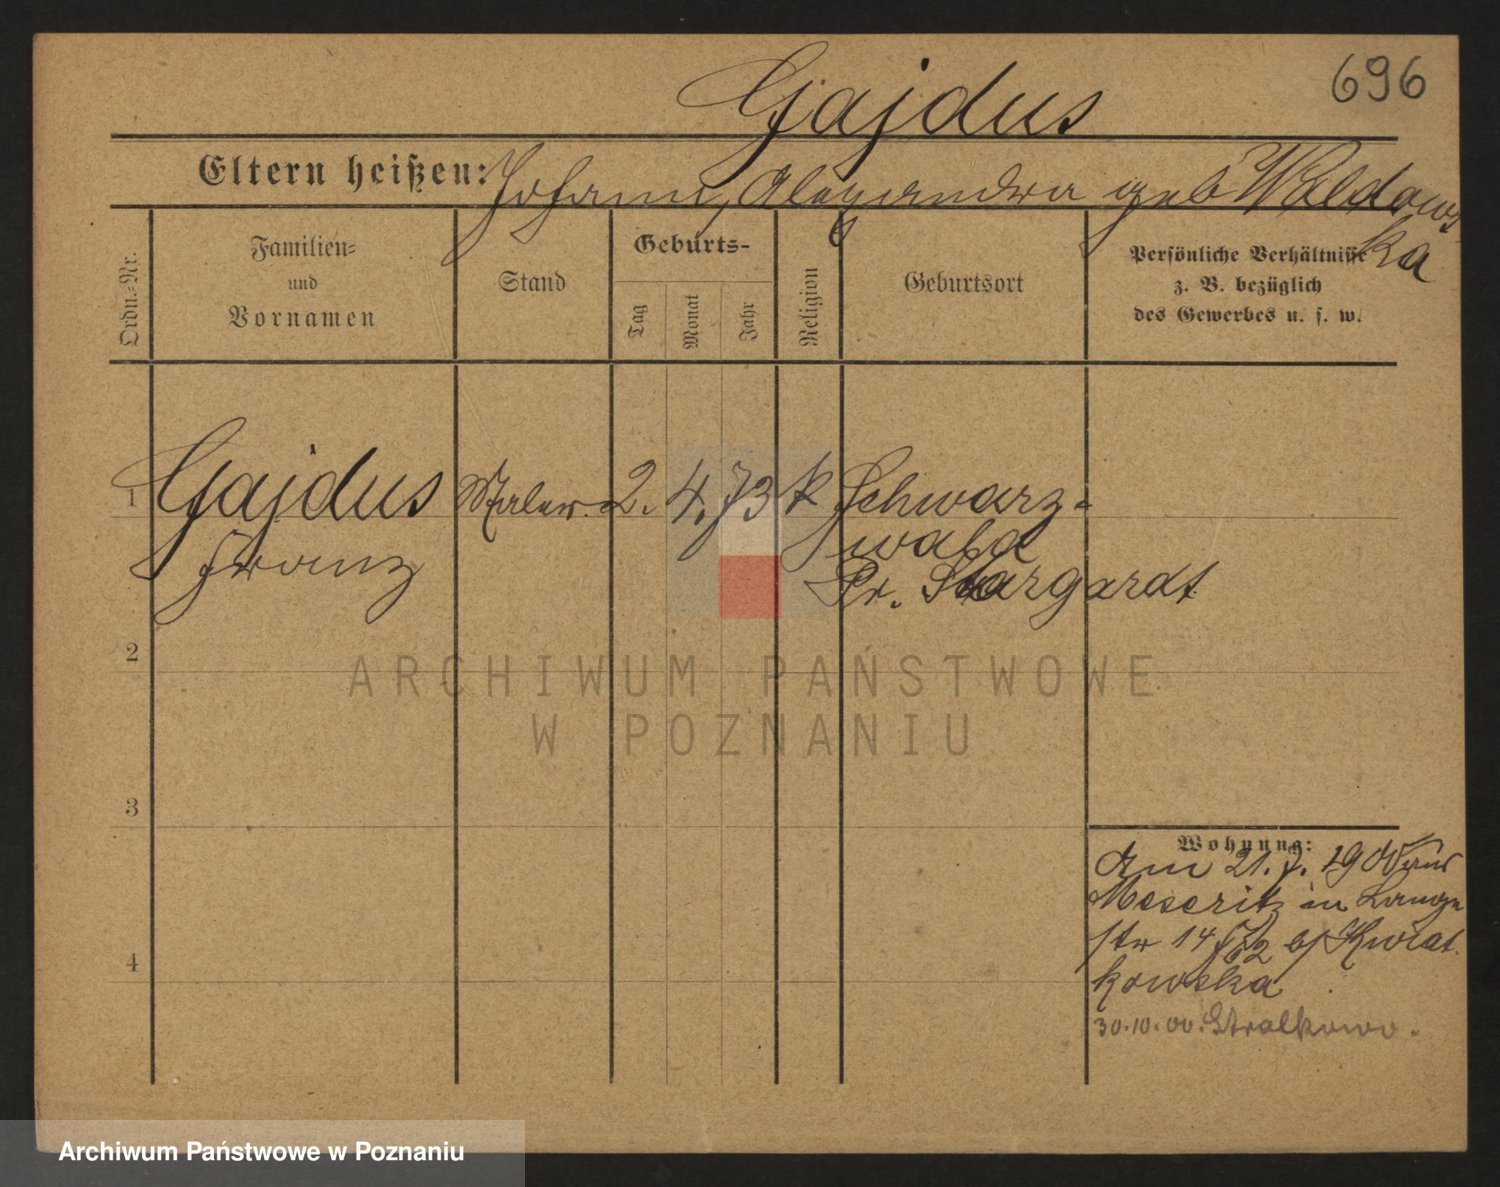 696
Gajdus
Eltern heißen: Johann, Alexandra geb Waldows
ka
Ordn.=Nr.
Familien=
und
Vornamen
Stand
Geburts-
Tag
Monat
Jahr
Religion
Geburtsort
Persönliche Verhältnisse
z. B. bezüglich
des Gewerbes u. s. w.
1 Gajdus Maler 2. 4. 73 k Schwarz=
Franz wald
Pr. Stargardt
2
ARCHIWUM PAŃSTWOWE
W POZNANIU
3
Wohnung:
Am 21. 7. 1900 aus
Meseritz in Lange
str 14 b/ Kwiat
kowska
4
30.10.00. Stralkowo.
Archiwum Państwowe w Poznaniu